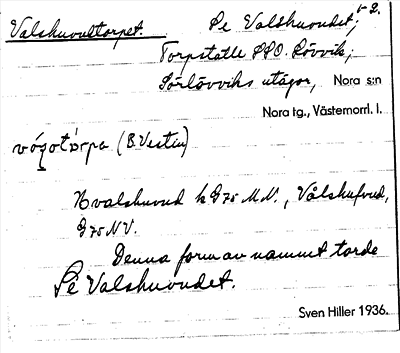 Valshuvudtorpet. Se Valshuvudet, 1-2.
Torpställe SSO. Lövvik;
Sörlövviks utägor, Nora s:n
Nora tg., Västernorrl. l.
(B. Vestin)
Hvalshuvud k G75 M.M., Vålshufvud,
G75 NV.
Denna form av namnet torde
Se Valshuvudet.
Sven Hiller 1936.